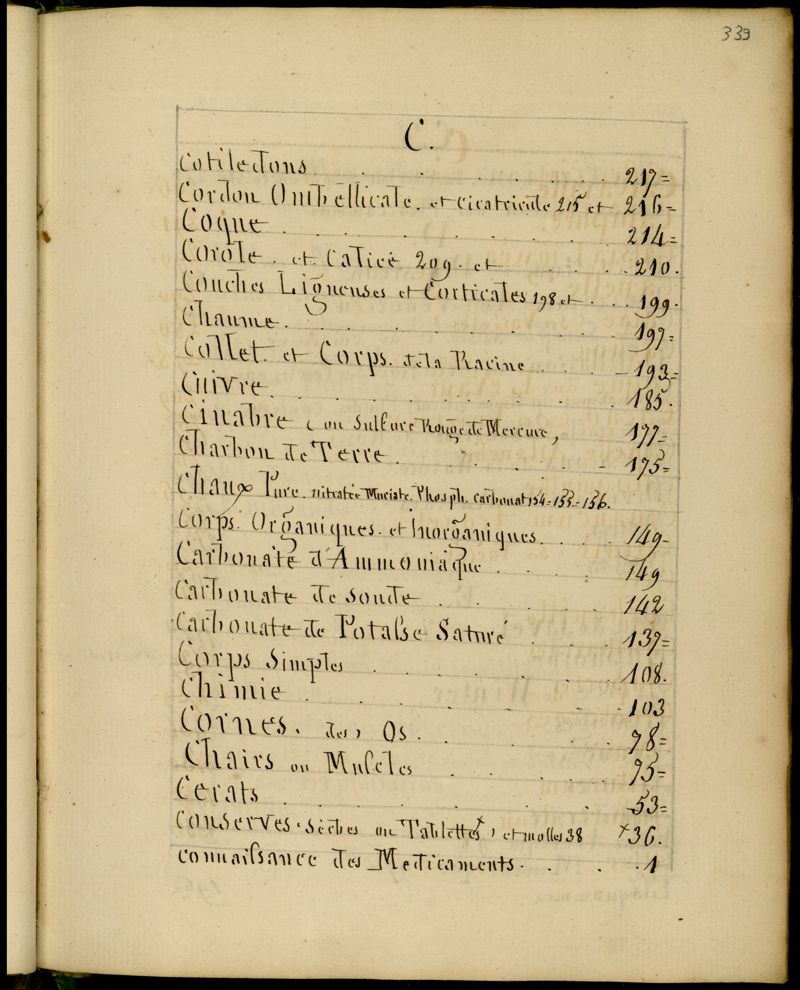 339
C.
Cotiledons . . . . . . 217=
Cordon Ombellicale. et Cicatricule 215 et 216=
Coque . . . . . . . 214=
Corole. et. Calice 209. et . . . . 210.
Couches Ligneuses et Corticales 198 et . . . 199.
Chaume. . . . . . . . 197=
Collet. et Corps. de la Racine . . . . 193=
Cuivre. . . . . . . . 185.
Cinabre, ou Sulfure Rouge de Mercure, 177=
Charbon de Terre. . . . . . 175=
Chaux Pure. nitratée Muriate. Phosph. carbonat 154=155=156.
Corps. Organiques. et Inorganiques. . . . . 149-
Carbonate d'Ammoniaque . . . . 149
Carbonate de soude . . . . . 142
Carbonate de Potasse Saturé . . . . 139=
Corps Simples . . . . . . 108.
Chimie . . . . . . 103
Cornes. des, Os. . . . . . 78=
Chairs ou Muscles . . . . . 75=
Cerats . . . . . . . 53=
Conserves. sèches ou Tablettes+, et molles 38 +36.
connaissance des Medicaments. . . . 1